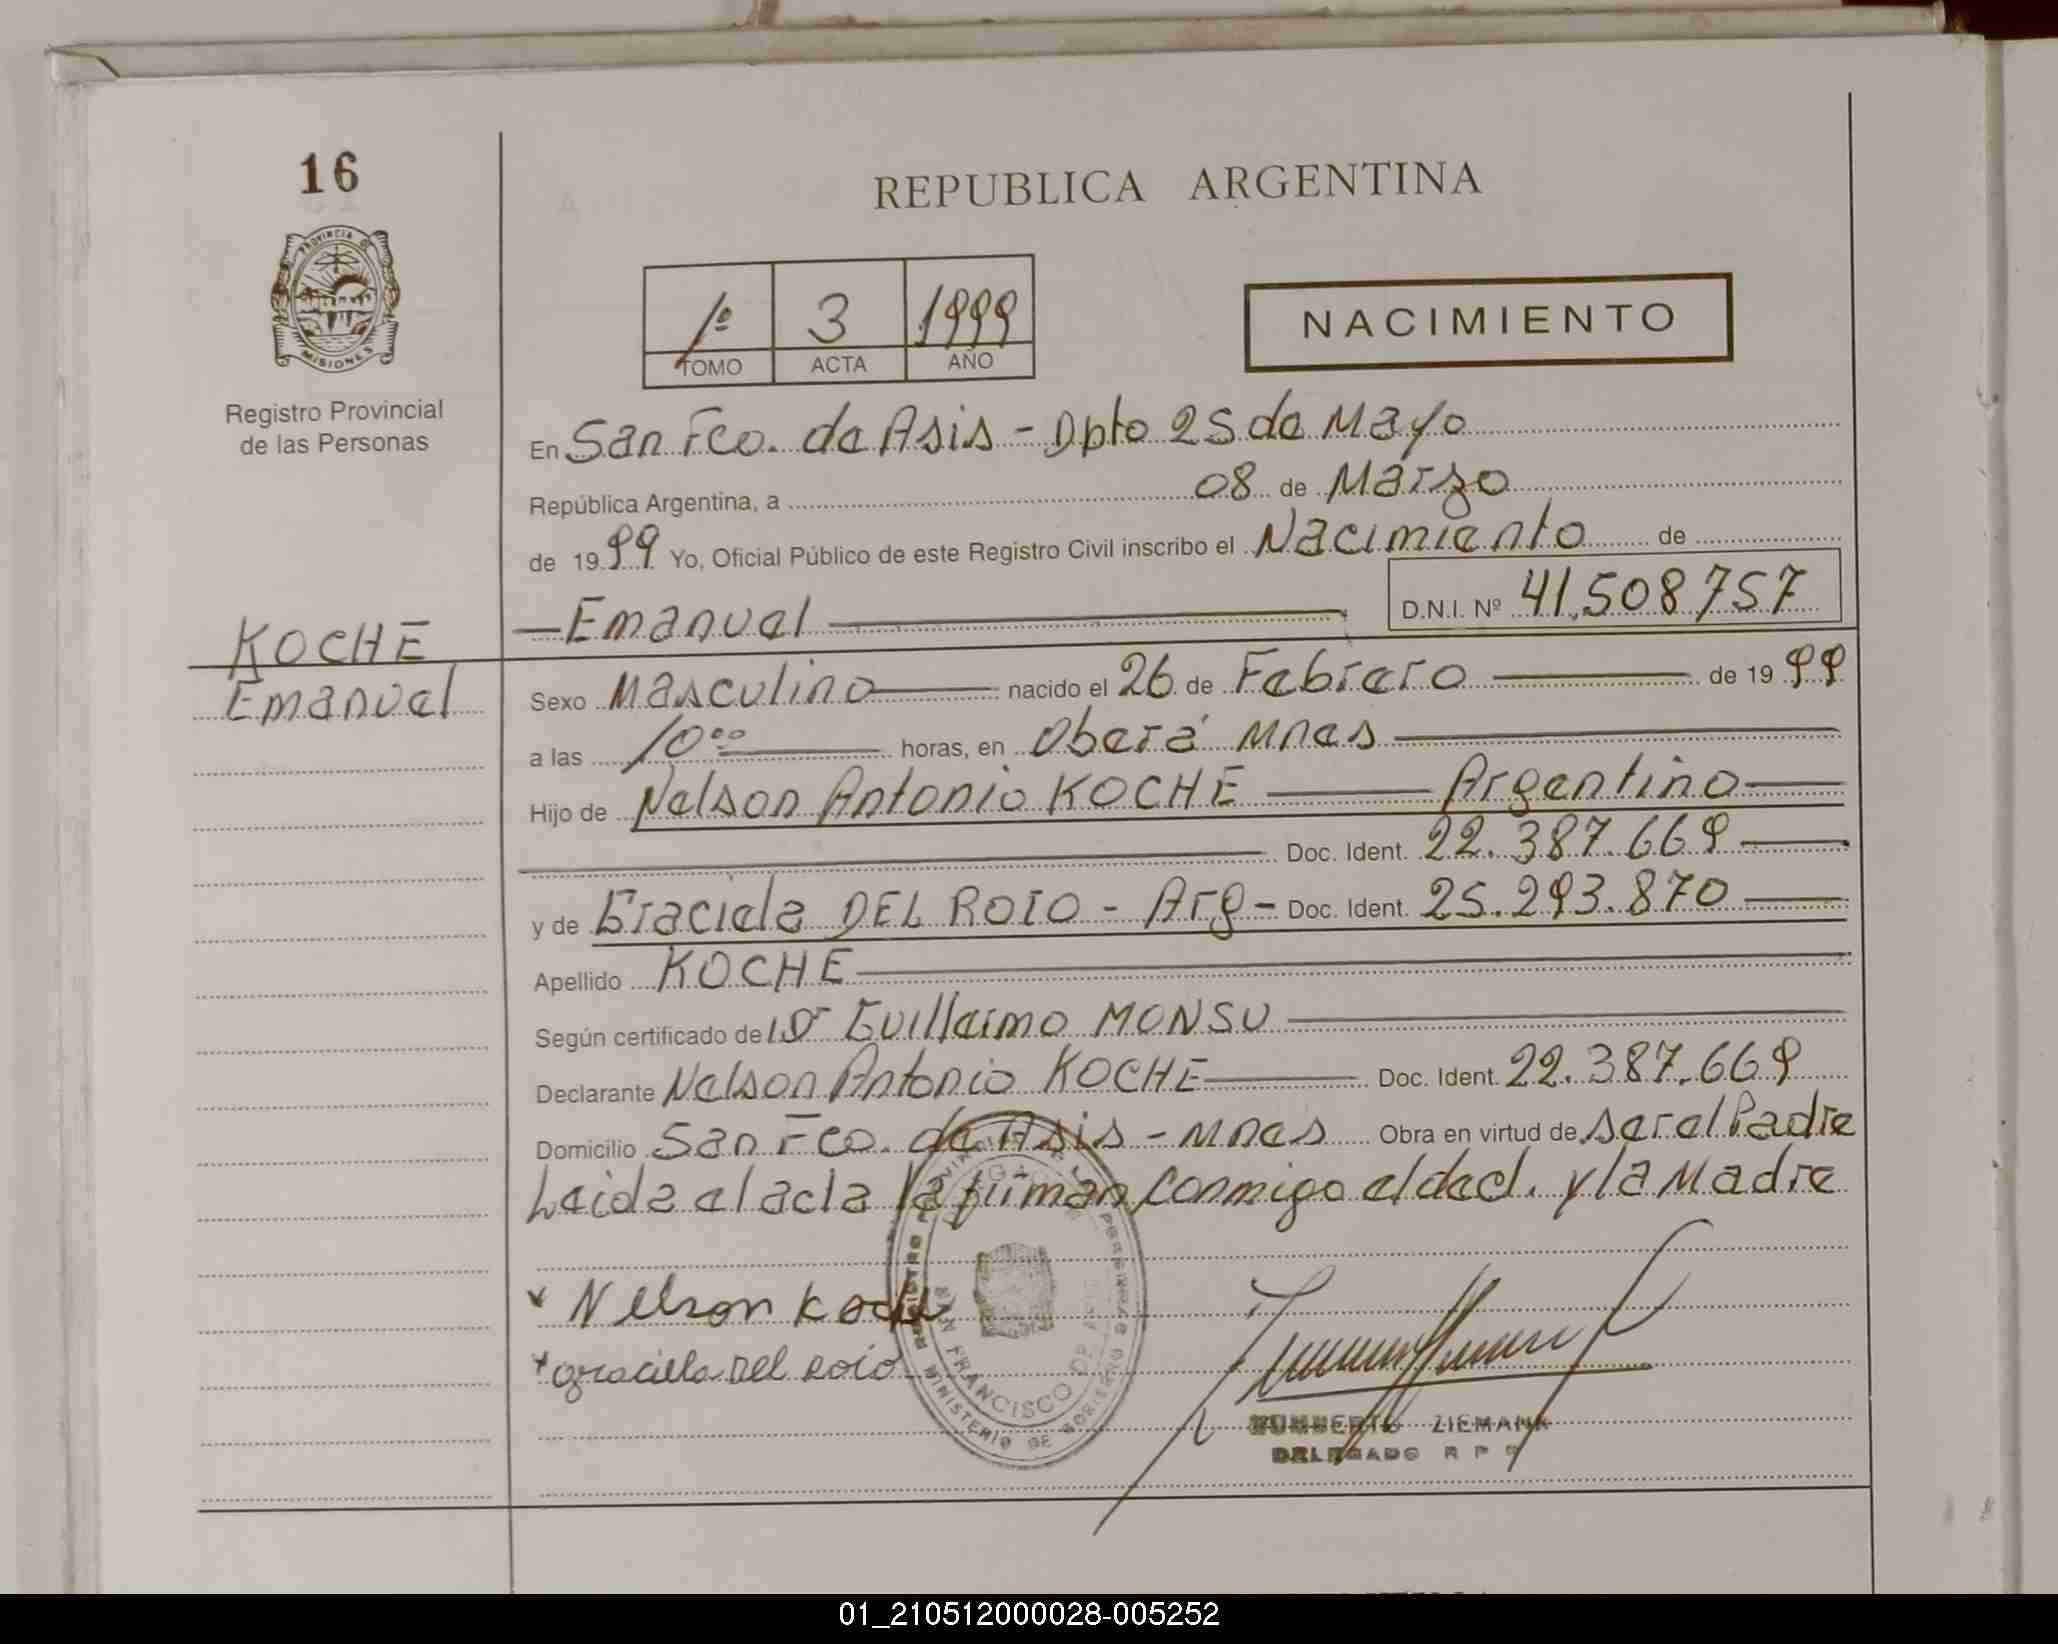 16
PROVINCIA DE
MISIONES
Registro Provincial
de las Personas
REPUBLICA ARGENTINA
1º 3 1999
TOMO ACTA AÑO
NACIMIENTO
En San Fco. de Asis - Dpto 25 de Mayo
República Argentina, a 08 de Marzo
de 1999 Yo, Oficial Público de este Registro Civil inscribo el Nacimiento de
Emanuel D.N.I. Nº 41.508757
KOCHE
Emanuel
Sexo Masculino nacido el 26 de Febrero de 1999
a las 10⁰⁰ horas, en Oberá Mnes
Hijo de Nelson Antonio KOCHE Argentino
Doc. Ident. 22.387.669
y de Graciela DEL ROIO - Arg - Doc. Ident. 25.293.870
Apellido KOCHE
Según certificado del Dr Guillermo MONSU
Declarante Nelson Antonio KOCHE Doc. Ident. 22.387.669
Domicilio San Fco. de Asis - Mnes Obra en virtud de ser el Padre
Leida el acta la firman conmigo el decl. y la Madre
x Nelson Koche
x graciella Del Roio
SAN FRANCISCO DE ASIS
MINISTERIO DE GOBIERNO
HUMBERTO ZIEMANN
DELEGADO R P P
01_210512000028-005252